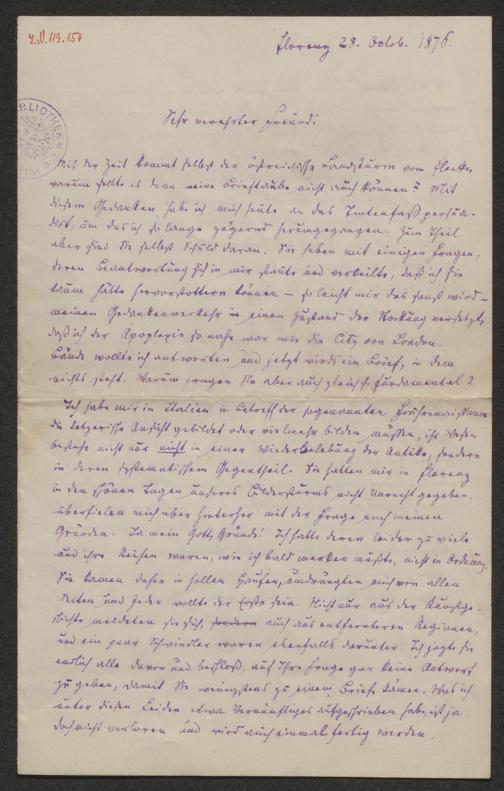 J.N. 113.154
Florenz 28. Octob. 1876.
BIBLIOTHEK
Sehr verehrter Freund!
Mit der Zeit kommt selbst der östreichische Landsturm vom Flecke,
warum sollte es denn meine Brieftaube nicht auch können? Mit
diesem Gedanken habe ich mich heute an das Tintenfaß persua-
dirt, um das ich so lange zögernd herumgegangen. Zum Theil
aber sind Sie selbst Schuld daran. Sie haben mit einigen Fragen,
deren Beantwortung sich in mir staute und verkeilte, daß ich sie
kaum hätte hervorstottern können – so leicht mir das sonst wird –
meinen Gedankenverkehr in einen Zustand der Stockung versetzt,
daß ich der Apoplexie so nahe war wie die City von London.
Bände wollte ich antworten und jetzt wird's ein Brief, in dem
nichts steht. Warum fragen Sie aber auch gleich so fundamental?
Ich habe mir in Italien in Betreff der sogenannten Frührenaissance
die ketzerische Ansicht gebildet oder vielmehr bilden müssen, ihr Wesen
bestehe nicht nur nicht in einer Wiederbelebung der Antike, sondern
in deren systematischem Gegentheil. Sie hatten mir in Florenz
in den schönen Tagen unseres Bildersturms nicht Unrecht gegeben,
überfielen mich aber hinterher mit der Frage nach meinen
Gründen. Ja mein Gott, Gründe! Ich hatte deren leider zu viele
und ihre Reihen waren, wie ich bald merken mußte, nicht in Ordnung.
Sie kamen daher in hellen Haufen, umdrängten mich von allen
Seiten und jeder wollte der Erste sein. Nicht nur aus der Kunstge-
schichte meldeten sie sich, sondern auch aus entfernteren Regionen,
und ein paar Schwindler waren ebenfalls darunter. Ich jagte sie
endlich alle davon und beschloß, auf Ihre Frage gar keine Antwort
zu geben, damit Sie wenigstens zu einem Briefe kämen. Was ich
unter diesen Leiden etwa Vernünftiges aufgeschrieben habe, ist ja
doch nicht verloren und wird auch einmal fertig werden.